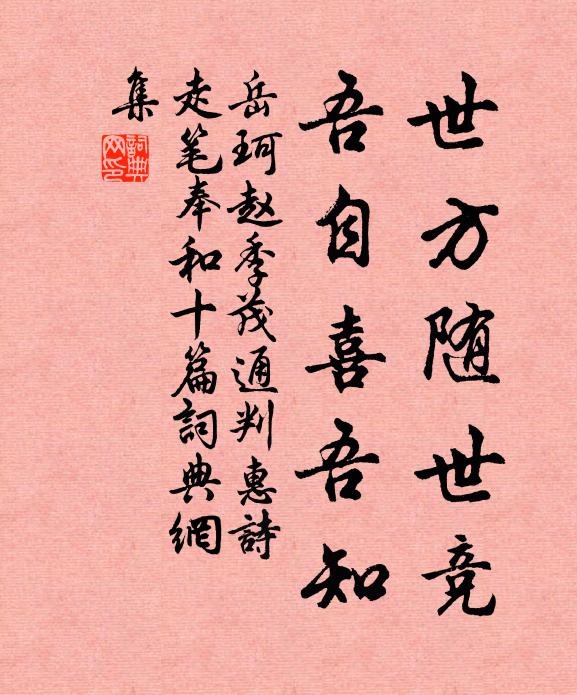 世方随世竞
吾自喜吾知
岳珂赵季茂通判惠詩
走笔奉和十篇詞典網
集
詞典网印